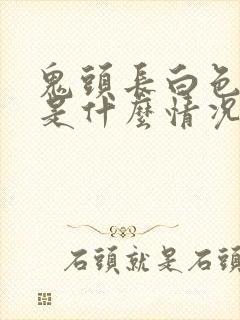 鬼頭長白色
是什麼情況
石頭就是石頭